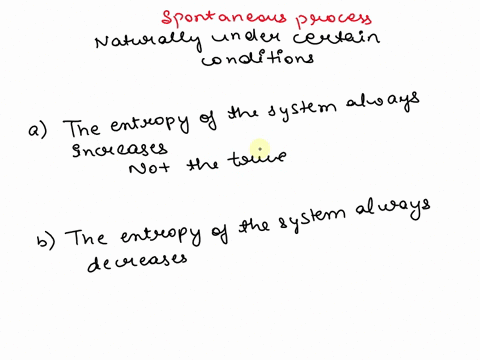 Spontaneous process
Naturally under certain
conditions
a) The entropy of the system always
increases
Not the true
b) The entropy of the system always
decreases